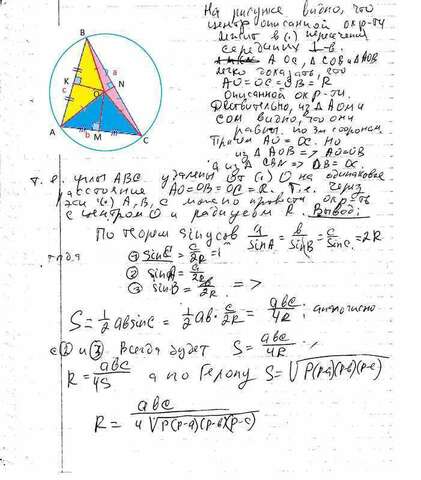 На рисунке видно, что
центр описанной окр-ти
лежит в (.) пересечения
середин.
AOC, ΔCOB и ΔAOB
легко доказать, что
AO=OC=OB=R
Описанной окр-ти.
Действительно, из ΔAOM и
COM видно, что они
равны. по 3м сторонам
Причем AO=OC. Но
из ΔAOB => AO=OB
из ΔCBN => OB=OC.
B
K
a
c
O
N
A
b
M
C
т.е. углы ABC удалены от (.) O на одинаковое
расстояние AO=OB=OC=R. Т.е. через
эти (.) A, B, C можно провести окр-ть
с центром O и радиусом R. Вывод:
По теореме синусов a/sinA = b/sinB = c/sinC = 2R
① sinC = c/2R
② sinA = a/2R
③ sinB = b/2R =>
S = 1/2 absinc = 1/2 ab · c/2R = abc/4R; аналогично
с ② и ③ Всегда будет S = abc/4R,
R = abc/4S а по Герону S = √P(P-a)(P-b)(P-c)
R = abc/4√P(P-a)(P-b)(P-c)